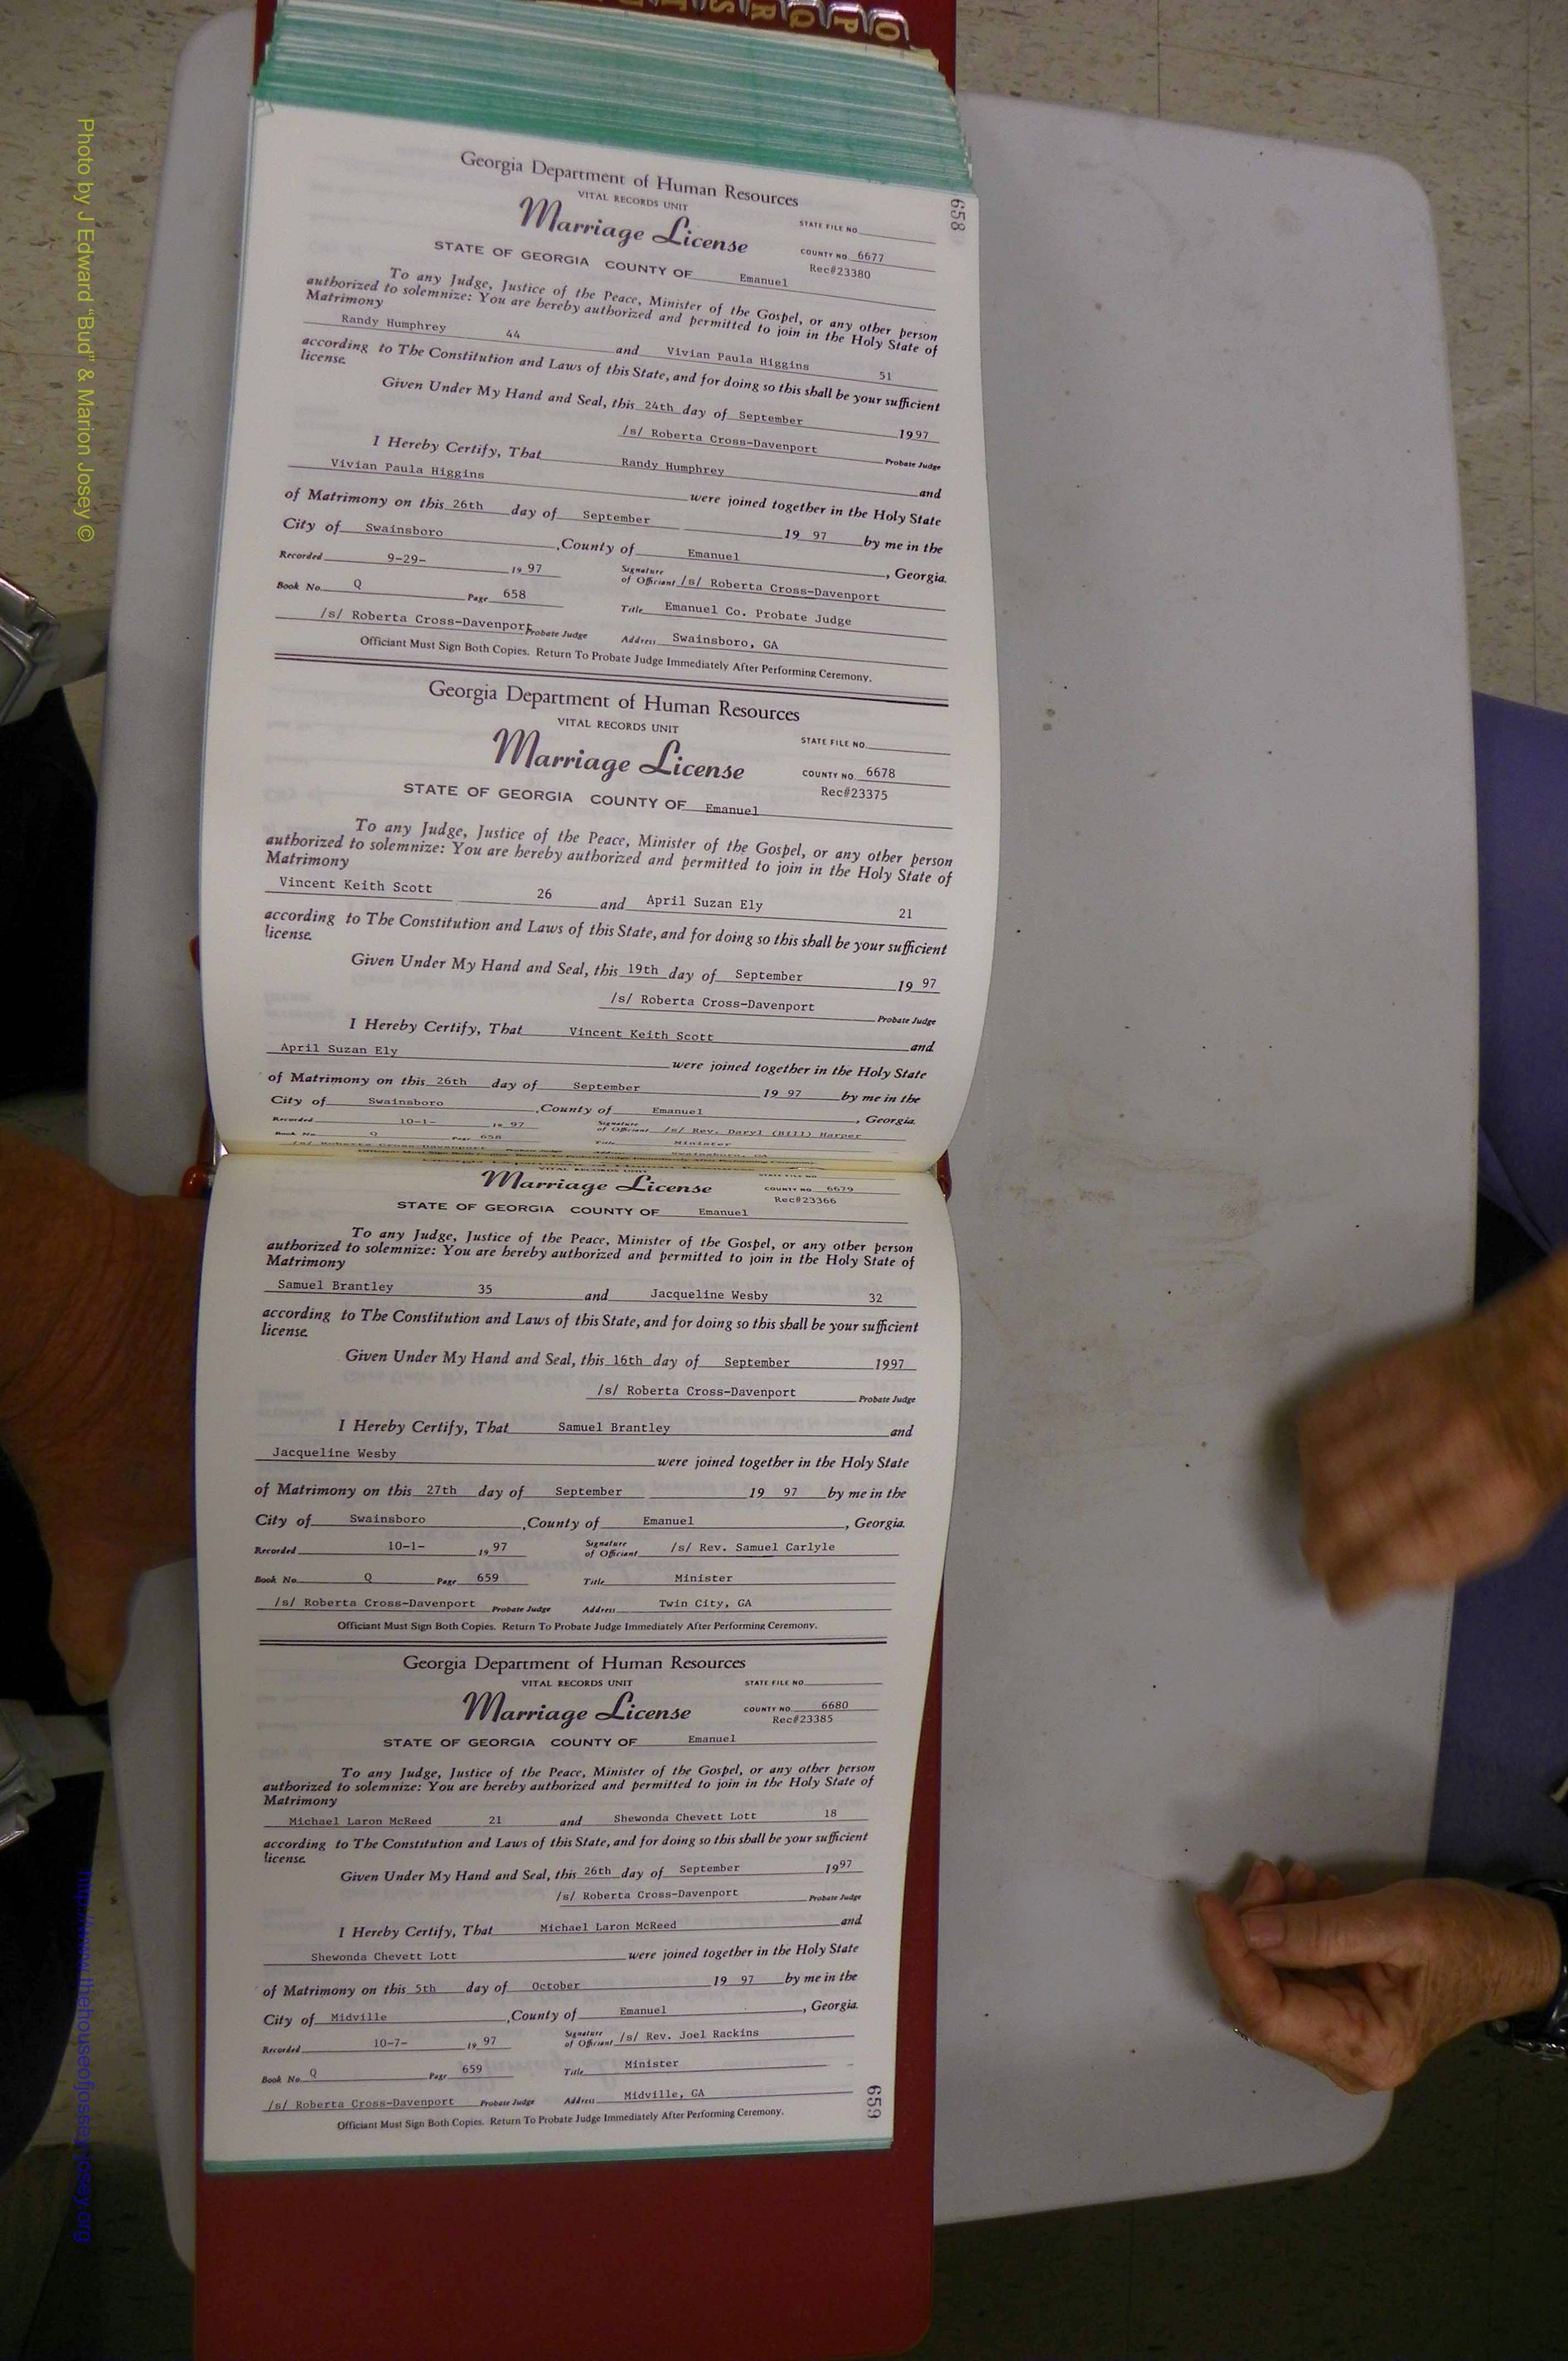 O P Q R S T
658
Georgia Department of Human Resources
VITAL RECORDS UNIT
STATE FILE NO.
Marriage License
COUNTY NO. 6677
Rec#23380
STATE OF GEORGIA COUNTY OF Emanuel
To any Judge, Justice of the Peace, Minister of the Gospel, or any other person
authorized to solemnize: You are hereby authorized and permitted to join in the Holy State of
Matrimony
Randy Humphrey 44 and Vivian Paula Higgins 51
according to The Constitution and Laws of this State, and for doing so this shall be your sufficient
license.
Given Under My Hand and Seal, this 24th day of September 1997
/s/ Roberta Cross-Davenport Probate Judge
I Hereby Certify, That Randy Humphrey and
Vivian Paula Higgins were joined together in the Holy State
of Matrimony on this 26th day of September 19 97 by me in the
City of Swainsboro, County of Emanuel, Georgia.
Recorded 9-29- 19 97 Signature of Officiant /s/ Roberta Cross-Davenport
Book No. Q Page 658 Title Emanuel Co. Probate Judge
/s/ Roberta Cross-Davenport Probate Judge Address Swainsboro, GA
Officiant Must Sign Both Copies. Return To Probate Judge Immediately After Performing Ceremony.
Georgia Department of Human Resources
VITAL RECORDS UNIT
STATE FILE NO.
Marriage License
COUNTY NO. 6678
Rec#23375
STATE OF GEORGIA COUNTY OF Emanuel
To any Judge, Justice of the Peace, Minister of the Gospel, or any other person
authorized to solemnize: You are hereby authorized and permitted to join in the Holy State of
Matrimony
Vincent Keith Scott 26 and April Suzan Ely 21
according to The Constitution and Laws of this State, and for doing so this shall be your sufficient
license.
Given Under My Hand and Seal, this 19th day of September 19 97
/s/ Roberta Cross-Davenport Probate Judge
I Hereby Certify, That Vincent Keith Scott and
April Suzan Ely were joined together in the Holy State
of Matrimony on this 26th day of September 19 97 by me in the
City of Swainsboro, County of Emanuel, Georgia.
Recorded 10-1- 19 97 Signature of Officiant /s/ Rev. Daryl (Bill) Harper
Book No. Q Page 658 Title Minister
/s/ Roberta Cross-Davenport Probate Judge Address Swainsboro, GA
Officiant Must Sign Both Copies. Return To Probate Judge Immediately After Performing Ceremony.
VITAL RECORDS UNIT
STATE FILE NO.
Marriage License
COUNTY NO. 6679
Rec#23366
STATE OF GEORGIA COUNTY OF Emanuel
To any Judge, Justice of the Peace, Minister of the Gospel, or any other person
authorized to solemnize: You are hereby authorized and permitted to join in the Holy State of
Matrimony
Samuel Brantley 35 and Jacqueline Wesby 32
according to The Constitution and Laws of this State, and for doing so this shall be your sufficient
license.
Given Under My Hand and Seal, this 16th day of September 1997
/s/ Roberta Cross-Davenport Probate Judge
I Hereby Certify, That Samuel Brantley and
Jacqueline Wesby were joined together in the Holy State
of Matrimony on this 27th day of September 19 97 by me in the
City of Swainsboro, County of Emanuel, Georgia.
Recorded 10-1- 19 97 Signature of Officiant /s/ Rev. Samuel Carlyle
Book No. Q Page 659 Title Minister
/s/ Roberta Cross-Davenport Probate Judge Address Twin City, GA
Officiant Must Sign Both Copies. Return To Probate Judge Immediately After Performing Ceremony.
Georgia Department of Human Resources
VITAL RECORDS UNIT
STATE FILE NO.
Marriage License
COUNTY NO. 6680
Rec#23385
STATE OF GEORGIA COUNTY OF Emanuel
To any Judge, Justice of the Peace, Minister of the Gospel, or any other person
authorized to solemnize: You are hereby authorized and permitted to join in the Holy State of
Matrimony
Michael Laron McReed 21 and Shewonda Chevett Lott 18
according to The Constitution and Laws of this State, and for doing so this shall be your sufficient
license.
Given Under My Hand and Seal, this 26th day of September 1997
/s/ Roberta Cross-Davenport Probate Judge
I Hereby Certify, That Michael Laron McReed and
Shewonda Chevett Lott were joined together in the Holy State
of Matrimony on this 5th day of October 19 97 by me in the
City of Midville, County of Emanuel, Georgia.
Recorded 10-7- 19 97 Signature of Officiant /s/ Rev. Joel Rackins
Book No. Q Page 659 Title Minister
/s/ Roberta Cross-Davenport Probate Judge Address Midville, GA
Officiant Must Sign Both Copies. Return To Probate Judge Immediately After Performing Ceremony.
659
Photo by J Edward "Bud" & Marion Josey ©
http://www.thehouseofjossey-josey.org